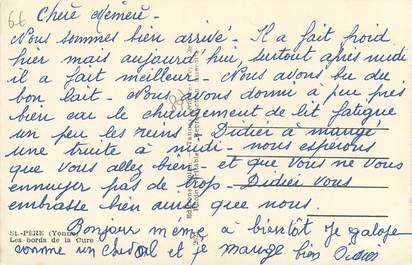 66
Chère Mémère -
Nous sommes bien arrivé. Il a fait froid
hier mais aujourd'hui, surtout après midi
il a fait meilleur - Nous avons bu du
bon lait - Nous avons dormi a peu près
bien car le changement de lit fatigue
un peu les reins - Didier à mangé
une truite à midi - nous esperons
que vous allez bien et que vous ne vous
ennuyer pas de trop - Didier vous
embrasse bien ainsi que nous.
St-PÈRE (Yonne)
Les bords de la Cure
Bonjour mémé à bientôt je galope
comme un cheval et je mange bien Didier